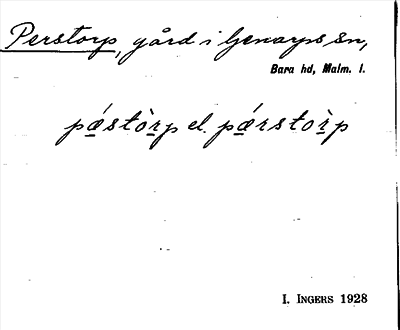 Perstorp, gård i Genarps sn,
Bara hd, Malm. l.
pǽstòrp el. pǽrstòrp
I. INGERS 1928